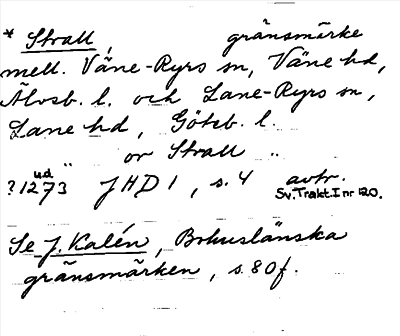 * Strall, gränsmärke
mell. Väne-Ryrs sn, Väne hd,
Älvsb. l. och Lane-Ryrs sn,
Lane hd, Göteb. l.
"or Strall"
?1273 ud JHD 1, s. 4 avtr.
Sv. Trakt. I nr 120.
Se J. Kalén, Bohuslänska
gränsmärken, s. 80 f.